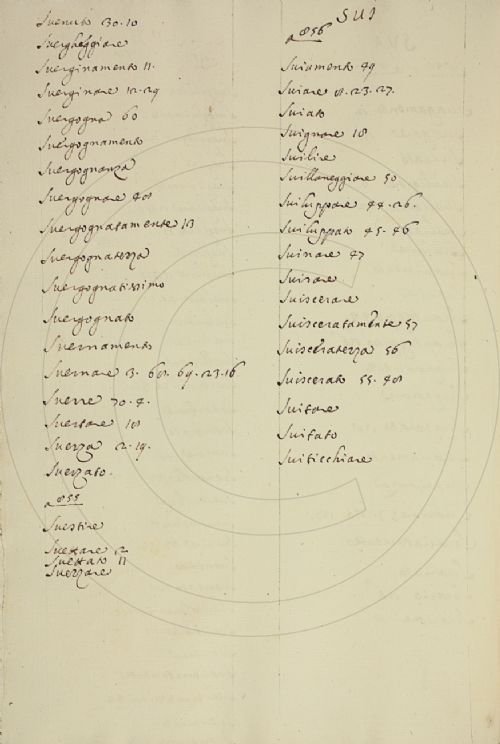 Suenuto 30. 10
Suergheggiare
Suerginamento 11.
Suerginare 12. 29
Suergogna 60
Suergognamento
Suergognanza
Suergognare 48
Suergognatamente 13
Suergognatezza
Suergognatissimo
Suergognato
Suernamento
Suernare 3. 68. 69. 23. 16
Suerre 70. 4.
Suertare 18
Suerza 2. 19.
Suerzato.
a 855
Suestire
Suettare 2
Suettato 11
Suerzare
SUI
a 856
Suiamento 49
Suiare 8. 23. 27.
Suiato
Suignare 18
Suilire
Suillaneggiare 50
Suiluppare 44. 26.
Suiluppato 45. 46
Suinare 47
Suisare
Suiscerare
Suisceratamente 57
Suisceratezza 56
Suiscerato 55. 48
Suitare
Suitato
Suiticchiare